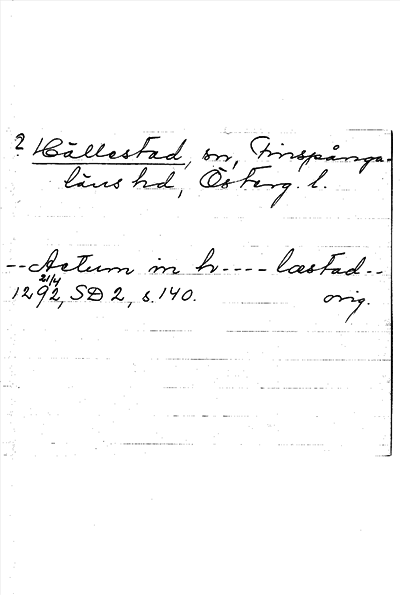 ? Hällestad, sn, Finspånga-
läns hd, Österg. l.
-- Actum in h---- læstad--
21/4
1292, SD 2, s. 140. orig.